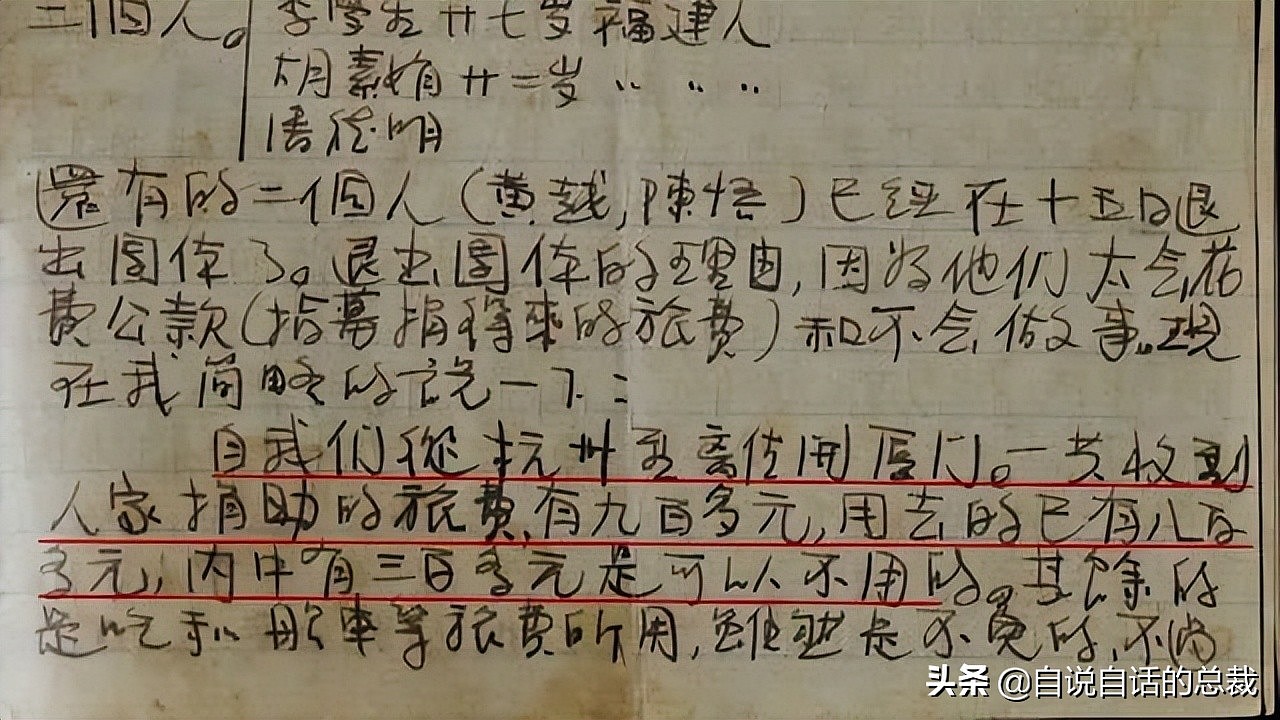 三個人。李學生廿七岁福建人
胡素娟廿二岁〃〃〃
潘德明
還有的二個人(黄越,陳悟)已經在十五日退
出團体了。退出團体的理由,因为他们太会花
费公款(指募捐得來的旅费)和不会做事。現
在我简略的説一下:
自我们從杭州至离开厦门。一共收到
人家捐助的旅费,有九百多元,用去的已有八百
多元,内中有三百多元是可以不用的。其馀的
是吃和船車等旅费所用,当然是不免的,不尚
头条 @自说自话的总裁